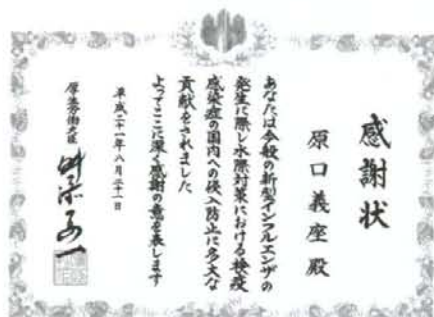 感謝状
原口義座殿
あなたは今般の新型インフルエンザの
発生に際し水際対策における検疫
感染症の国内への侵入防止に多大な
貢献をされました
よってここに深く感謝の意を表します
平成二十一年八月三十一日
厚生労働大臣
舛添要一